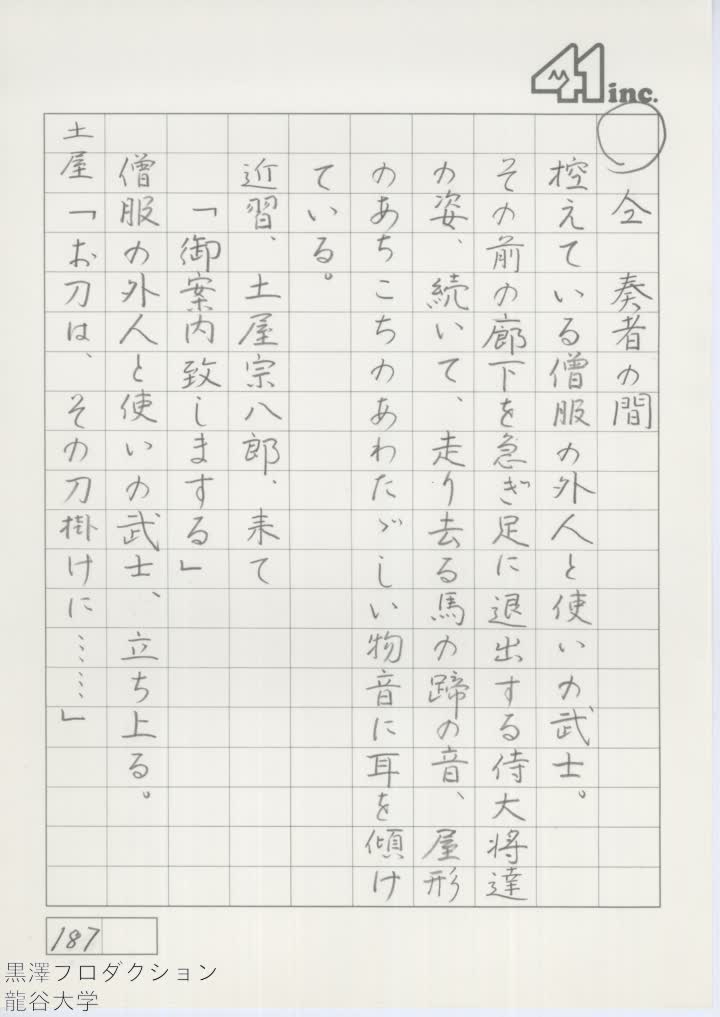 41 inc.
仝 奏者の間
控えている僧服の外人と使いの武士。
その前の廊下を急ぎ足に退出する侍大将達
の姿、続いて、走り去る馬の蹄の音、屋形
のあちこちのあわたゞしい物音に耳を傾け
ている。
近習、土屋宗八郎、来て
「御案内致しまする」
僧服の外人と使いの武士、立ち上る。
土屋「お刀は、その刀掛けに……」
187
黒澤プロダクション
龍谷大学